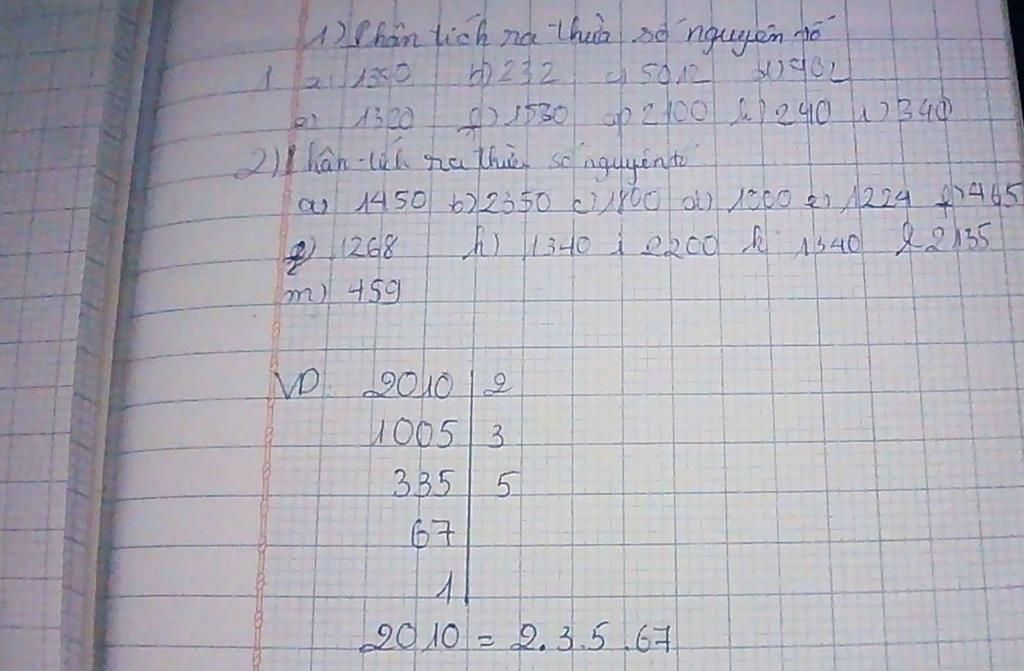 1) Phân tích ra thừa số nguyên tố
1 a) 1350 b) 232 c) 5012 d) 902
e) 1320 f) 1530 g) 2100 h) 240 i) 340
2) Phân tích ra thừa số nguyên tố
a) 1450 b) 2350 c) 1800 d) 1200 e) 1224 f) 465
g) 1268 h) 1340 i 2200 k 1340 l 2135
m) 459
VD. 2010 2
1005 3
335 5
67
1
2010 = 2.3.5.67